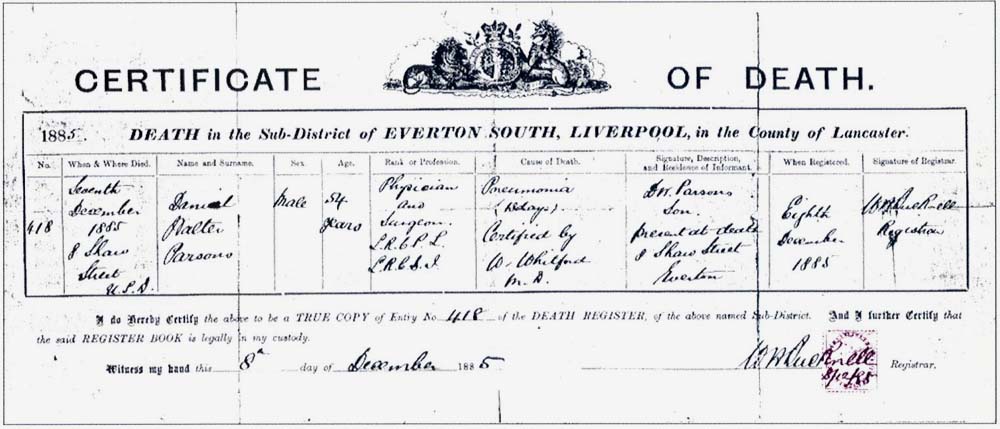 CERTIFICATE OF DEATH.
1885. DEATH in the Sub-District of EVERTON SOUTH, LIVERPOOL, in the County of Lancaster.
No. When & Where Died. Name and Surname. Sex. Age. Rank or Profession. Cause of Death. Signature, Description, and Residence of Informant. When Registered. Signature of Registrar.
418
Seventh
December
1885
8 Shaw
Street
U.S.D.
Daniel
Walter
Parsons
Male
54
years
Physician
and
Surgeon
L.R.C.P.L.
L.R.C.S.I
Pneumonia
days)
Certified by
W. Whitford
M.D.
D.W. Parsons
Son.
present at death
8 Shaw Street
Everton
Eighth
December
1885
Registrar
I do Hereby Certify the above to be a TRUE COPY of Entry No. 418 of the DEATH REGISTER, of the above named Sub-District. And I further Certify that
the said REGISTER BOOK is legally in my custody.
Witness my hand this 8th day of December 1885
Registrar.
8/12/85